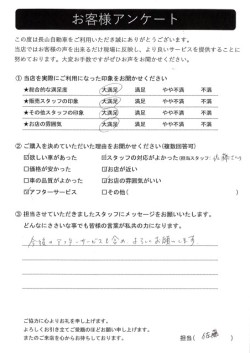 お客様アンケート
この度は長山自動車をご利用いただき誠にありがとうございます。
当店ではお客様の声を出来るだけ職場に反映し、より良いサービスを提供することに
努めております。大変お手数ですがぜひお声をお聞かせください。
① 当店を実際にご利用になった印象をお聞かせください
★総合的な満足度 大満足 満足 やや不満 不満
★販売スタッフの印象 大満足 満足 やや不満 不満
★その他スタッフの印象 大満足 満足 やや不満 不満
★お店の雰囲気 大満足 満足 やや不満 不満
② ご購入を決めていただいた理由をお聞かせください(複数回答可)
☑欲しい車があった ☑スタッフの対応がよかった(担当スタッフ: 佐藤さん)
□価格が安かった □お店が近い
□車の品質がよかった □お店の雰囲気がいい
☑アフターサービス □その他( )
③ 担当させていただきましたスタッフにメッセージをお願いいたします。
どんなにささいな事でも皆様の言葉が私共の力になります。
今後のアフターサービスも含め、よろしくお願いします
ご協力に心よりお礼を申し上げます。
よろしくお引き立てご愛顧のほどお願い申し上げます。
またのご来店を心からお待ちしております。
担当( 佐藤 )